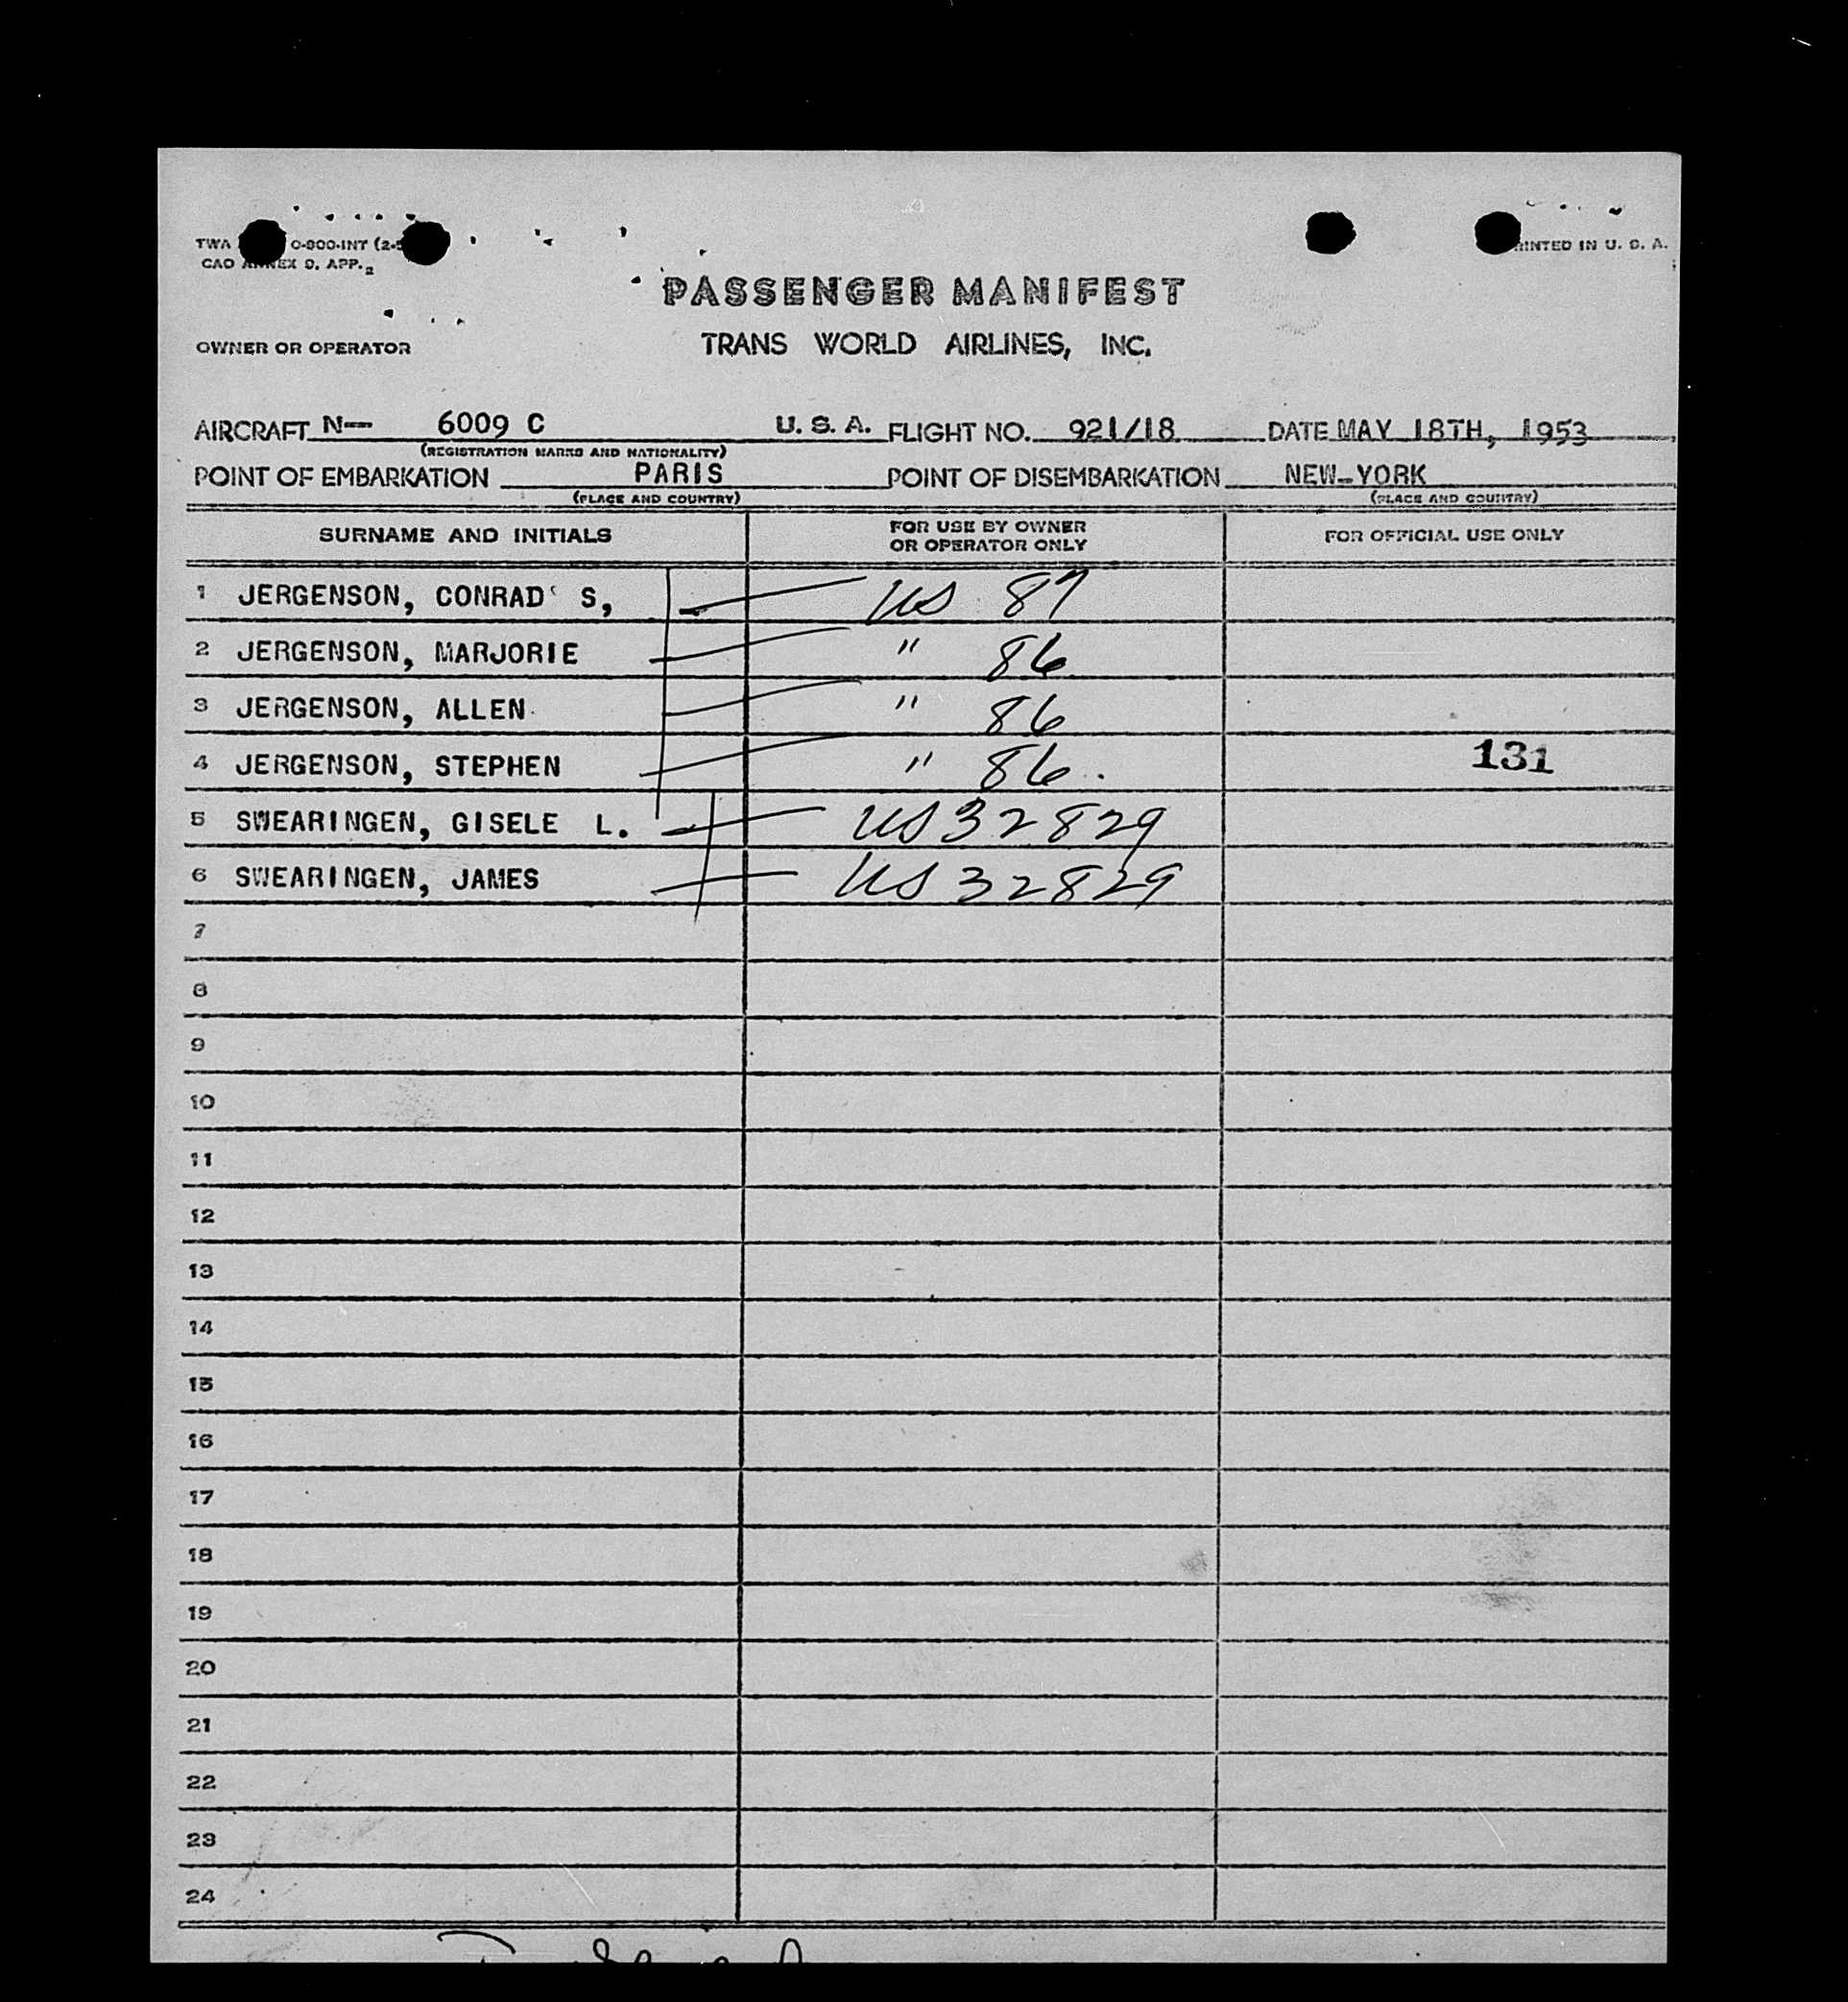 TWA O-800-INT (2-5
CAO ANNEX 9. APP. 2
PRINTED IN U. S. A.
PASSENGER MANIFEST
OWNER OR OPERATOR TRANS WORLD AIRLINES, INC.
AIRCRAFT N-- 6009 C U. S. A. FLIGHT NO. 921/18 DATE MAY 18TH, 1953
(REGISTRATION MARKS AND NATIONALITY)
POINT OF EMBARKATION PARIS POINT OF DISEMBARKATION NEW-YORK
(PLACE AND COUNTRY) (PLACE AND COUNTRY)
SURNAME AND INITIALS FOR USE BY OWNER OR OPERATOR ONLY FOR OFFICIAL USE ONLY
1 JERGENSON, CONRAD S, US 87
2 JERGENSON, MARJORIE " 86
3 JERGENSON, ALLEN " 86
4 JERGENSON, STEPHEN " 86. 131
5 SWEARINGEN, GISELE L. US 32829
6 SWEARINGEN, JAMES US 32829
7
8
9
10
11
12
13
14
15
16
17
18
19
20
21
22
23
24